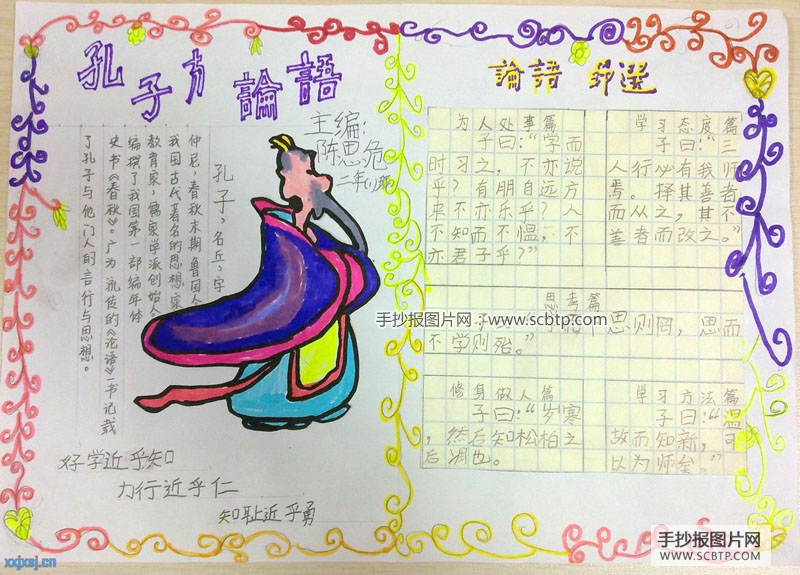 孔子
論語
主编:
陈思危
二年(1)班
孔子,名丘,字
仲尼,春秋末期鲁国人
我国古代著名的思想家
教育家,儒家学派创始人
编撰了我国第一部编年体
史书《春秋》。广为流传的《论语》一书记载
了孔子与他门人的言行与思想。
好学近乎知
力行近乎仁
知耻近乎勇
論語 節選
为人处事篇
子曰:“学而
时习之,不亦说
乎?有朋自远方
来不亦乐乎?人
不知而不愠,不
亦君子乎?”
学习态度篇
子曰:“三
人行必有我师
焉。择其善者
而从之,其不
善者而改之。”
思考篇
思则罔,思而
不学则殆。”
修身做人篇
子曰:“岁寒
,然后知松柏之
后凋也。
学习方法篇
子曰:“温
故而知新,可
以为师矣。”
手抄报图片网:www.scbtp.com
手抄报图片网
WWW.SCBTP.COM
xxjxsj.cn